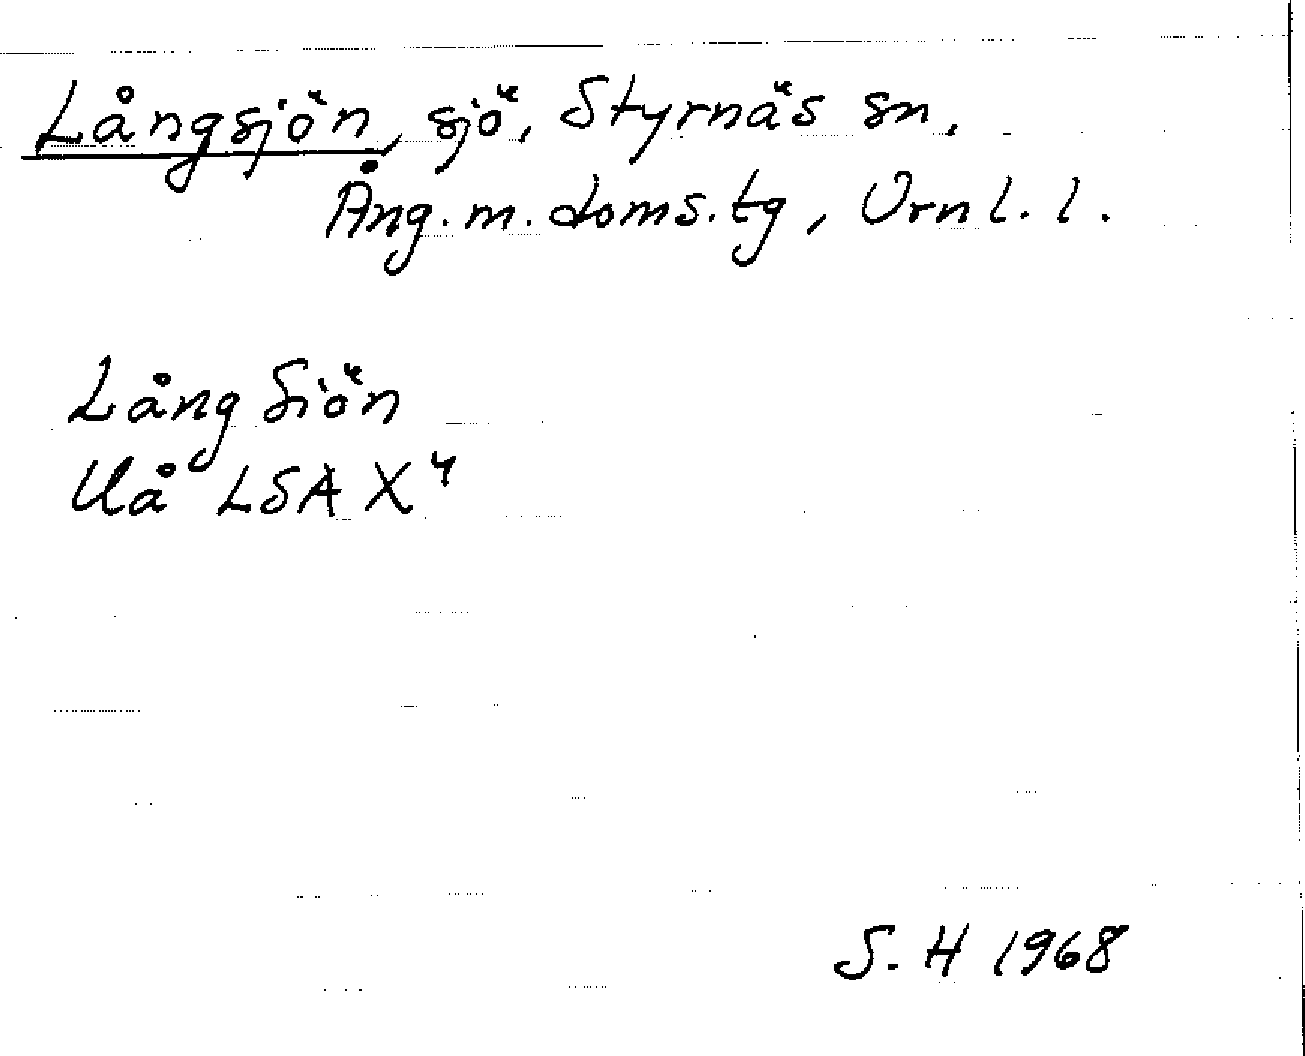 Långsjön, sjö, Styrnäs sn.
Ång. m. doms. tg, Vrnl. l.
Lång Siön
Uå LSA X 4
S. H 1968